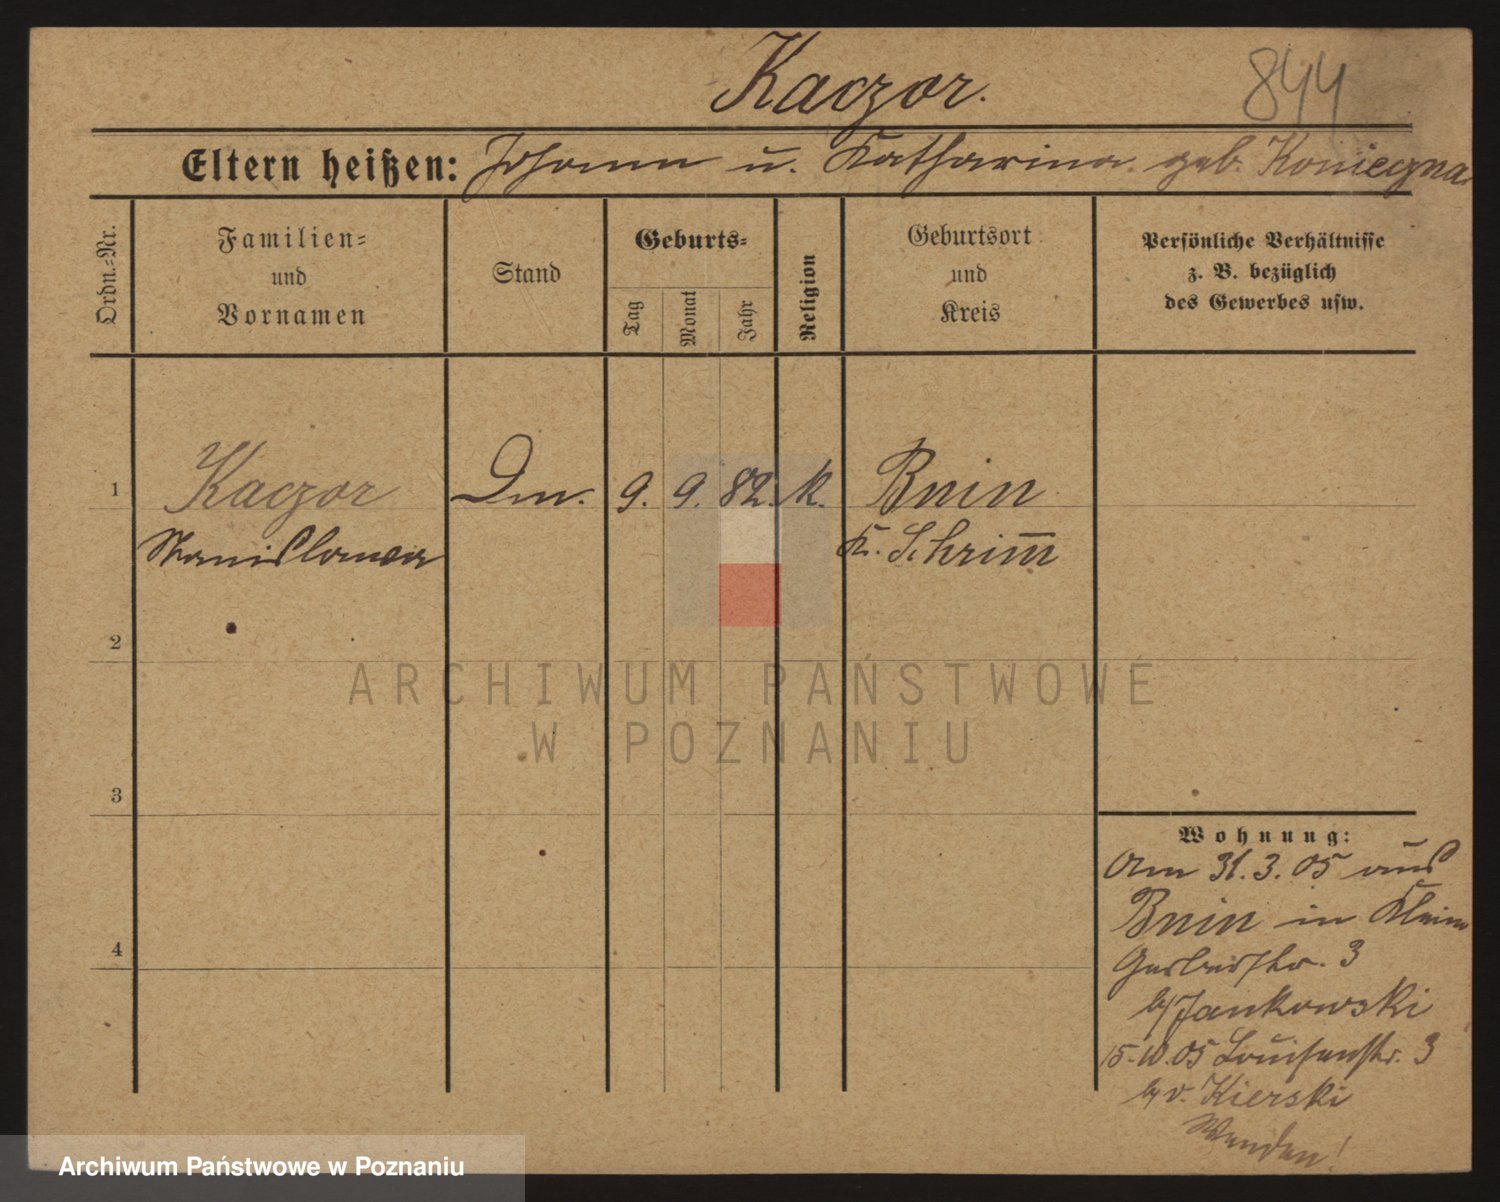 Kaczor.
844
Eltern heißen: Johann u. Katharina geb. Konieczna
Ordn.-Nr.
Familien-
und
Vornamen
Stand
Geburts-
Tag
Monat
Jahr
Religion
Geburtsort
und
Kreis
Persönliche Verhältnisse
z. B. bezüglich
des Gewerbes usw.
1
Kaczor
9. 9. 82. k.
Bnin
Stanislawa
K. Schrim̅
2
ARCHIWUM PAŃSTWOWE
W POZNANIU
3
Wohnung:
Am 31.3.05 aus
Bnin in Klein
Gerberstr. 3
b/Jankowski
15.10.05 Louisenstr. 3
b/v. Kierski
Wenden!
4
Archiwum Państwowe w Poznaniu